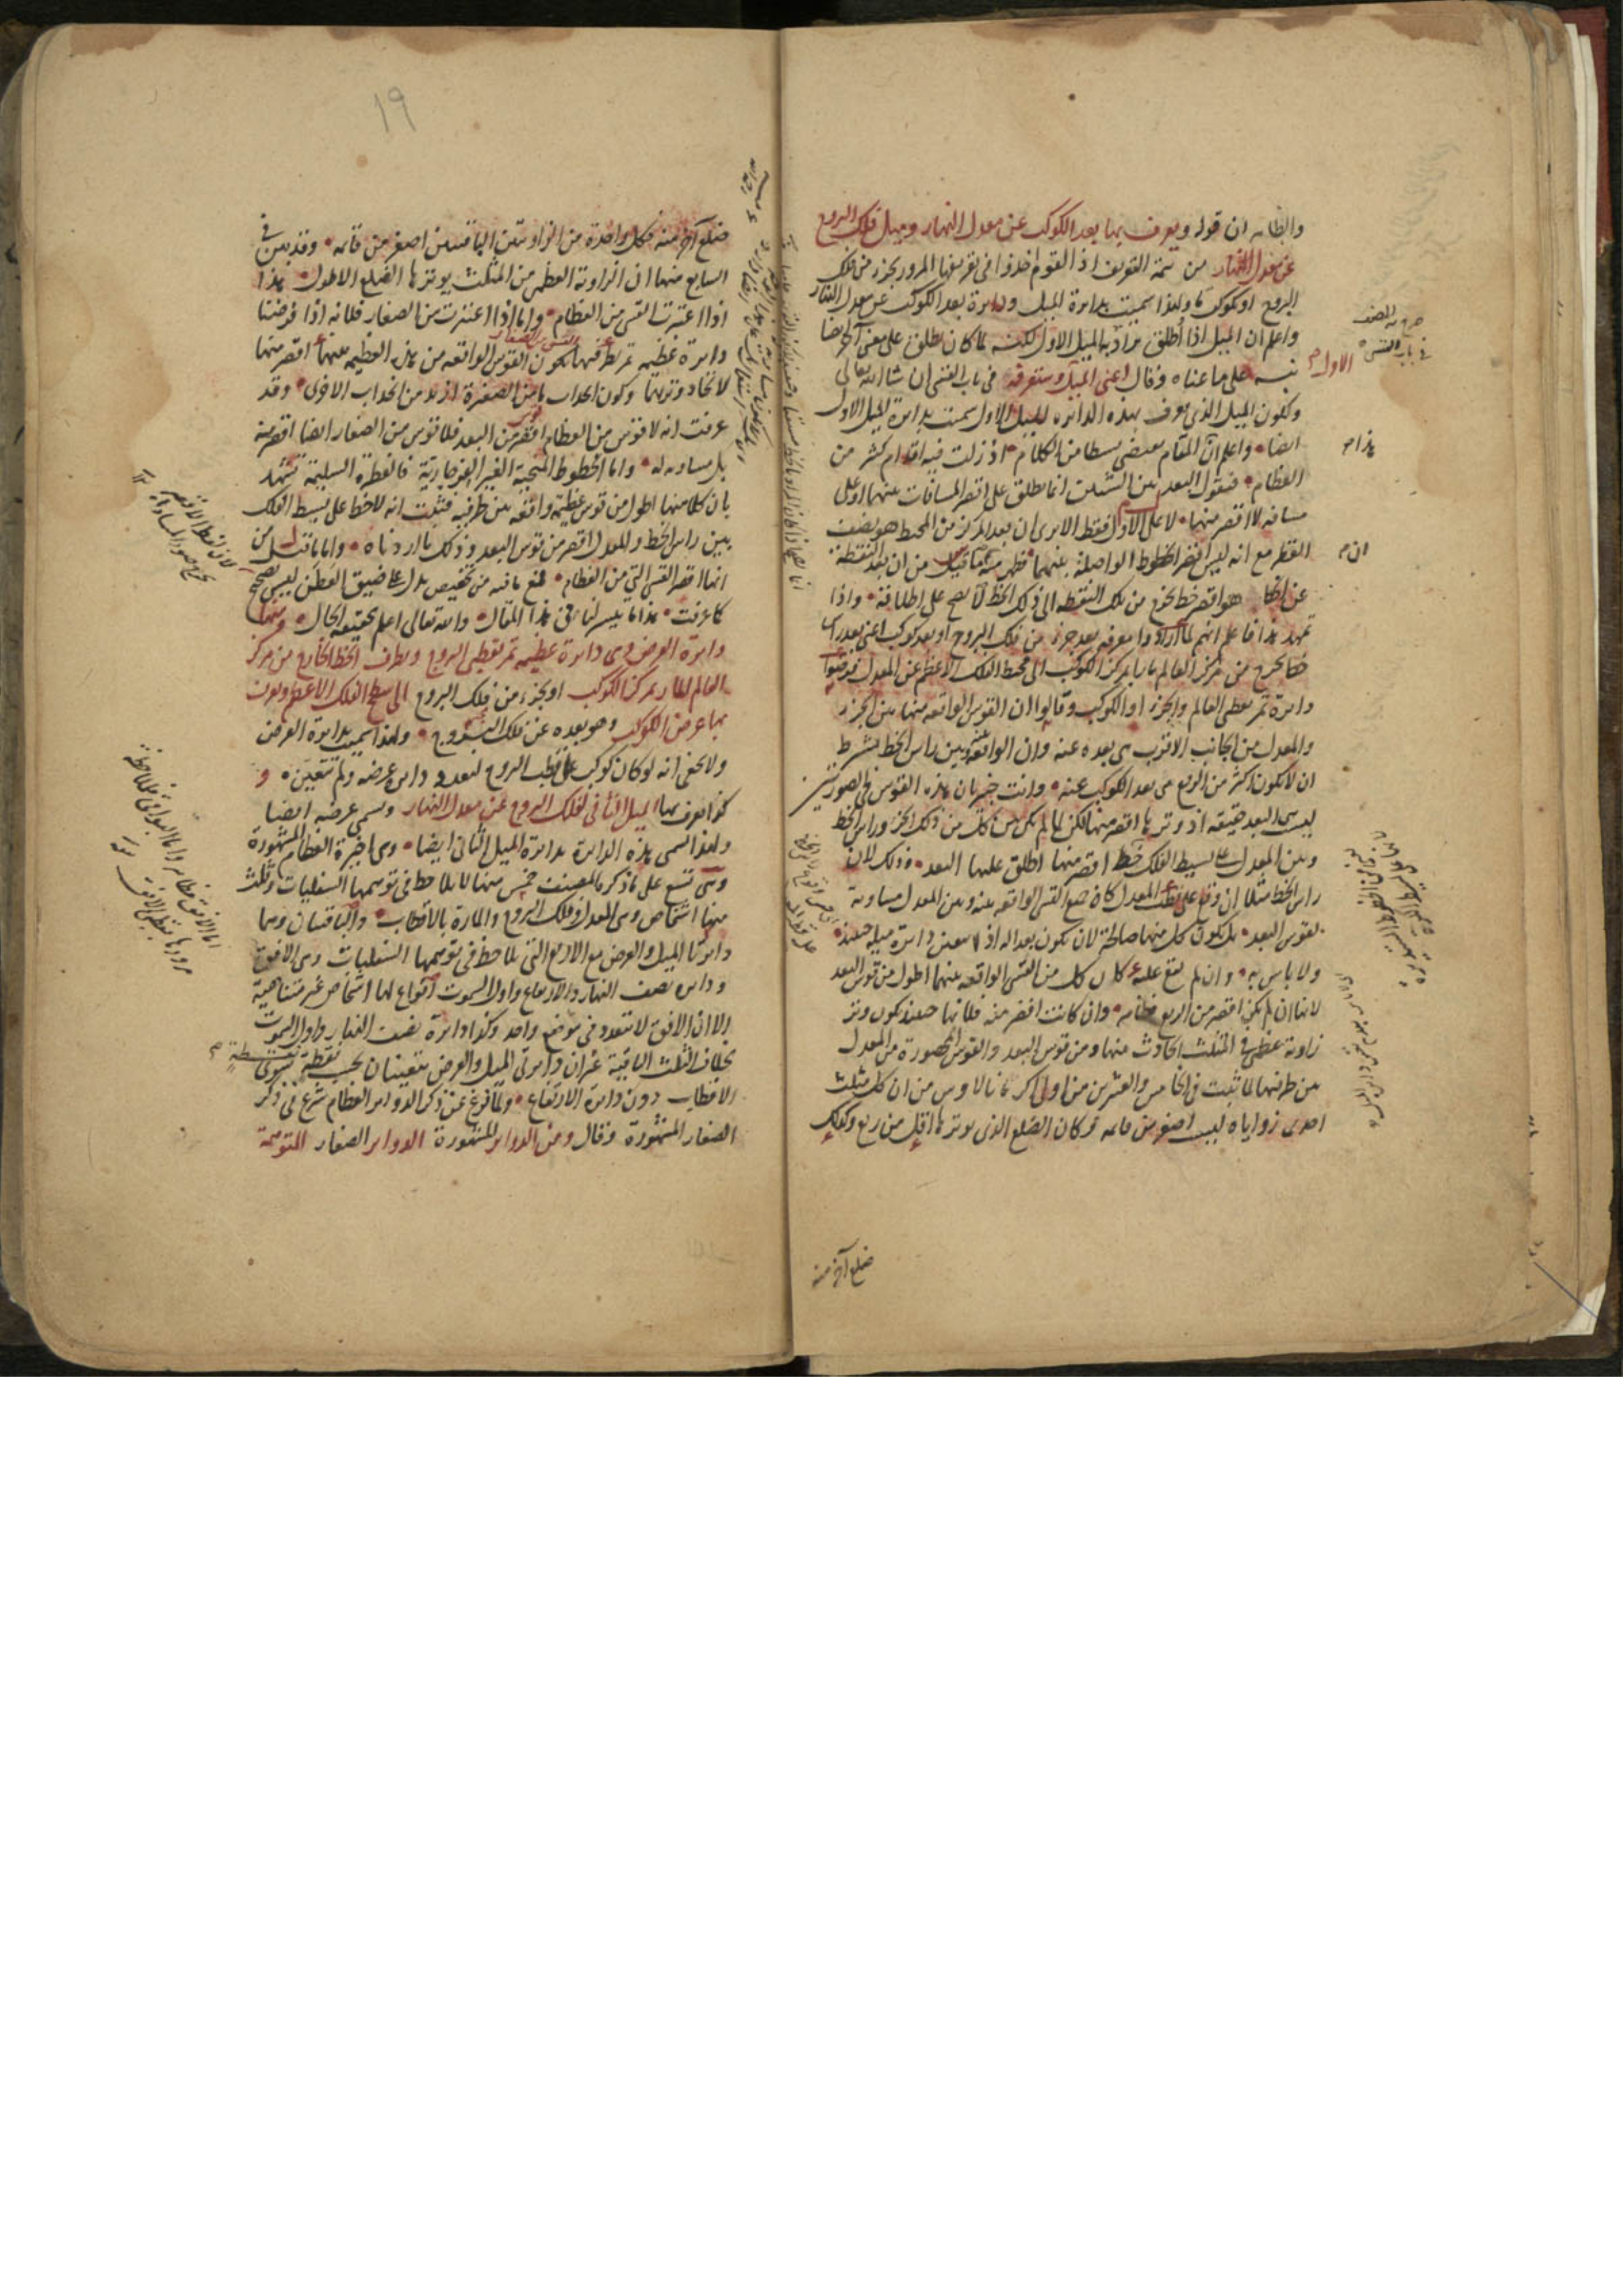 والظاهر ان قوله ويعرف بها بعد الكوكب عن معدل النهار وميل فلك البروج
عن معدل النهار من تتمة التعريف اذ القوم اخذوا في تعريفها المرور بجزء من فلك
البروج او بكوكب ما ولهذا سميت بدايرة الميل ودايرة بعد الكوكب عن معدل النهار
واعلم ان الميل اذا اطلق يراد به الميل الاول لكنه لما كان يطلق على معنى آخر ايضا
نبه على ما عناه وقال اعنى الميل الاول وستعرفه في باب القسى ان شا الله تعالى
ولكون الميل الذي يعرف بهذه الدايره الميل الاول سميت بدايرة الميل الاول
ايضا واعلم ان هذا المقام يقتضى بسطا من الكلام اذ زلت فيه اقدام كثير من
العظام فنقول البعد بين الشيئين انما يطلق على اقصر المسافات بينهما او على
مسافه لا اقصر منها لا على الاول فقط الا يرى ان بعد المركز من المحيط هو نصف
القطر مع انه ليس اقصر الخطوط الواصلة بينهما فظهر ان ما قيل من ان بعد النقطة
عن الخط هو اقصر خط يخرج من تلك النقطه الى ذلك الخط لا يصح على اطلاقه واذا
تمهد هذا فاعلم انهم لما ارادوا معرفه بعد جزء من فلك البروج او بعد كوكب اعنى بعد راس
خط يخرج من مركز العالم مارا بمركز الكوكب الى محيط الفلك الاعظم عن المعدل فرضوا
دايرة تمر بقطبى العالم وبالجزء او الكوكب وقالوا ان القوس الواقعه منها بين الجزء
والمعدل من الجانب الاقرب هى بعده عنه وان الواقعة بينه وبين راس الخط بشرط
ان لا يكون اكثر من الربع هى بعد الكوكب عنه وانت خبير بان هذه القوس في الصورتين
ليست البعد حقيقه اذ وترها اقصر منها لكن لما لم يكن بين كل من ذلك الجزء وراس الخط
وبين المعدل على بسيط الفلك خط اقصر منها اطلق عليها البعد وذلك لان
راس الخط مثلا ان وقع على قطب المعدل كان جميع القسى الواقعه بينه وبين المعدل مساوية
لقوس البعد بل يكون كل منها صالحة لان يكون بعدا له اذ لا يتعين دايرة ميله حينئذ
ولا باس به وان لم يقع عليه كان كل من القسى الواقعه بينهما اطول من قوس البعد
لانها ان لم يكن اقصر من الربع فظاهر وان كانت اقصر منه فلانها حينئذ يكون وتر
زاوية عظمى في المثلث الحادث منها ومن قوس البعد والقوس المحصورة من المعدل
بين طرفيهما لما ثبت في الخامس والعشرين من اولى اكر مانالاوس من ان كل مثلث
احدى زواياه ليست اصغر من قايمه وكان الضلع الذي يوترها اقل من ربع وكذلك
ضلع آخر منه
صرح به المصنف
في باب القسى
الاول
هذا
ان
١٩
ضلع آخر منه فكل واحدة من الزاويتين الباقيتين اصغر من قايمه وقد بين في
السابع منها ان الزاوية العظمى من المثلث يوترها الضلع الاطول هذا
اذا اعتبرت القسى من العظام واما اذا اعتبرت من الصغار فلانه اذا فرضنا
دايرة عظيمه تمر بطرفيها يكون القوس الواقعه من هذه العظيمه بينهما اقصر منها
لاتحاد وتريهما وكون انحداب هذه الصغيرة ازيد من انحداب الاخرى وقد
عرفت انه لا قوس من العظام اقصر من البعد فلا قوس من الصغار ايضا اقصر منه
بل مساويه له واما الخطوط المنحنية الغير الفرجارية فالفطرة السليمة تشهد
بان كلا منها اطول من قوس عظيمه واقعه بين طرفيه فثبت انه لا خط على بسيط الفلك
بين راس الخط والمعدل اقصر من قوس البعد وذلك ما اردناه واما ما قيل من
انها اقصر القسى التي من العظام فمع ما فيه من تخصيص يدل على ضيق العطن ليس بصحيح
كما عرفت هذا ما تيسر لنا في هذا المقال والله تعالى اعلم بحقيقه الحال ومنها
دايرة العرض وهى دايرة عظيمه تمر بقطبى البروج وبطرف الخط الخارج من مركز
العالم المار بمركز الكوكب او بجزء من فلك البروج الى سطح الفلك الاعظم ويعرف
بها عرض الكوكب وهو بعده عن فلك البروج ولهذا سميت بدايرة العرض
ولا يخفى انه لو كان كوكب على قطب البروج لتعدد داير عرضه ولم تتعين و
كذا يعرف بها الميل الثانى لفلك البروج عن معدل النهار ويسمى عرضه ايضا
ولهذا تسمى هذه الدايرة بدايرة الميل الثانى ايضا وهى اخيرة العظام المشهورة
وهى تسع على ما ذكره المصنف خمس منها لا يلاحظ في توهمها السفليات وثلث
منها اشخاص وهى المعدل وفلك البروج والمارة بالاقطاب والباقيتان وهما
دايرتا الميل والعرض مع الاربع التى يلاحظ في توهمها السفليات وهى الافق
ودايره نصف النهار والارتفاع واول السموت انواع لها اشخاص غير متناهية
الا ان الافق لا يتعدد في موضع واحد وكذا دايرة نصف النهار واول السموت
بخلاف الثلث الباقية غير ان دايرتى الميل والعرض يتعينان بحسب نقطة نقطة سوى
الاقطاب دون دايرة الارتفاع ولما فرغ عن ذكر الدواير العظام شرع في ذكر
الصغار المشهورة وقال ومن الدواير المشهورة الدواير الصغار المتوهمة